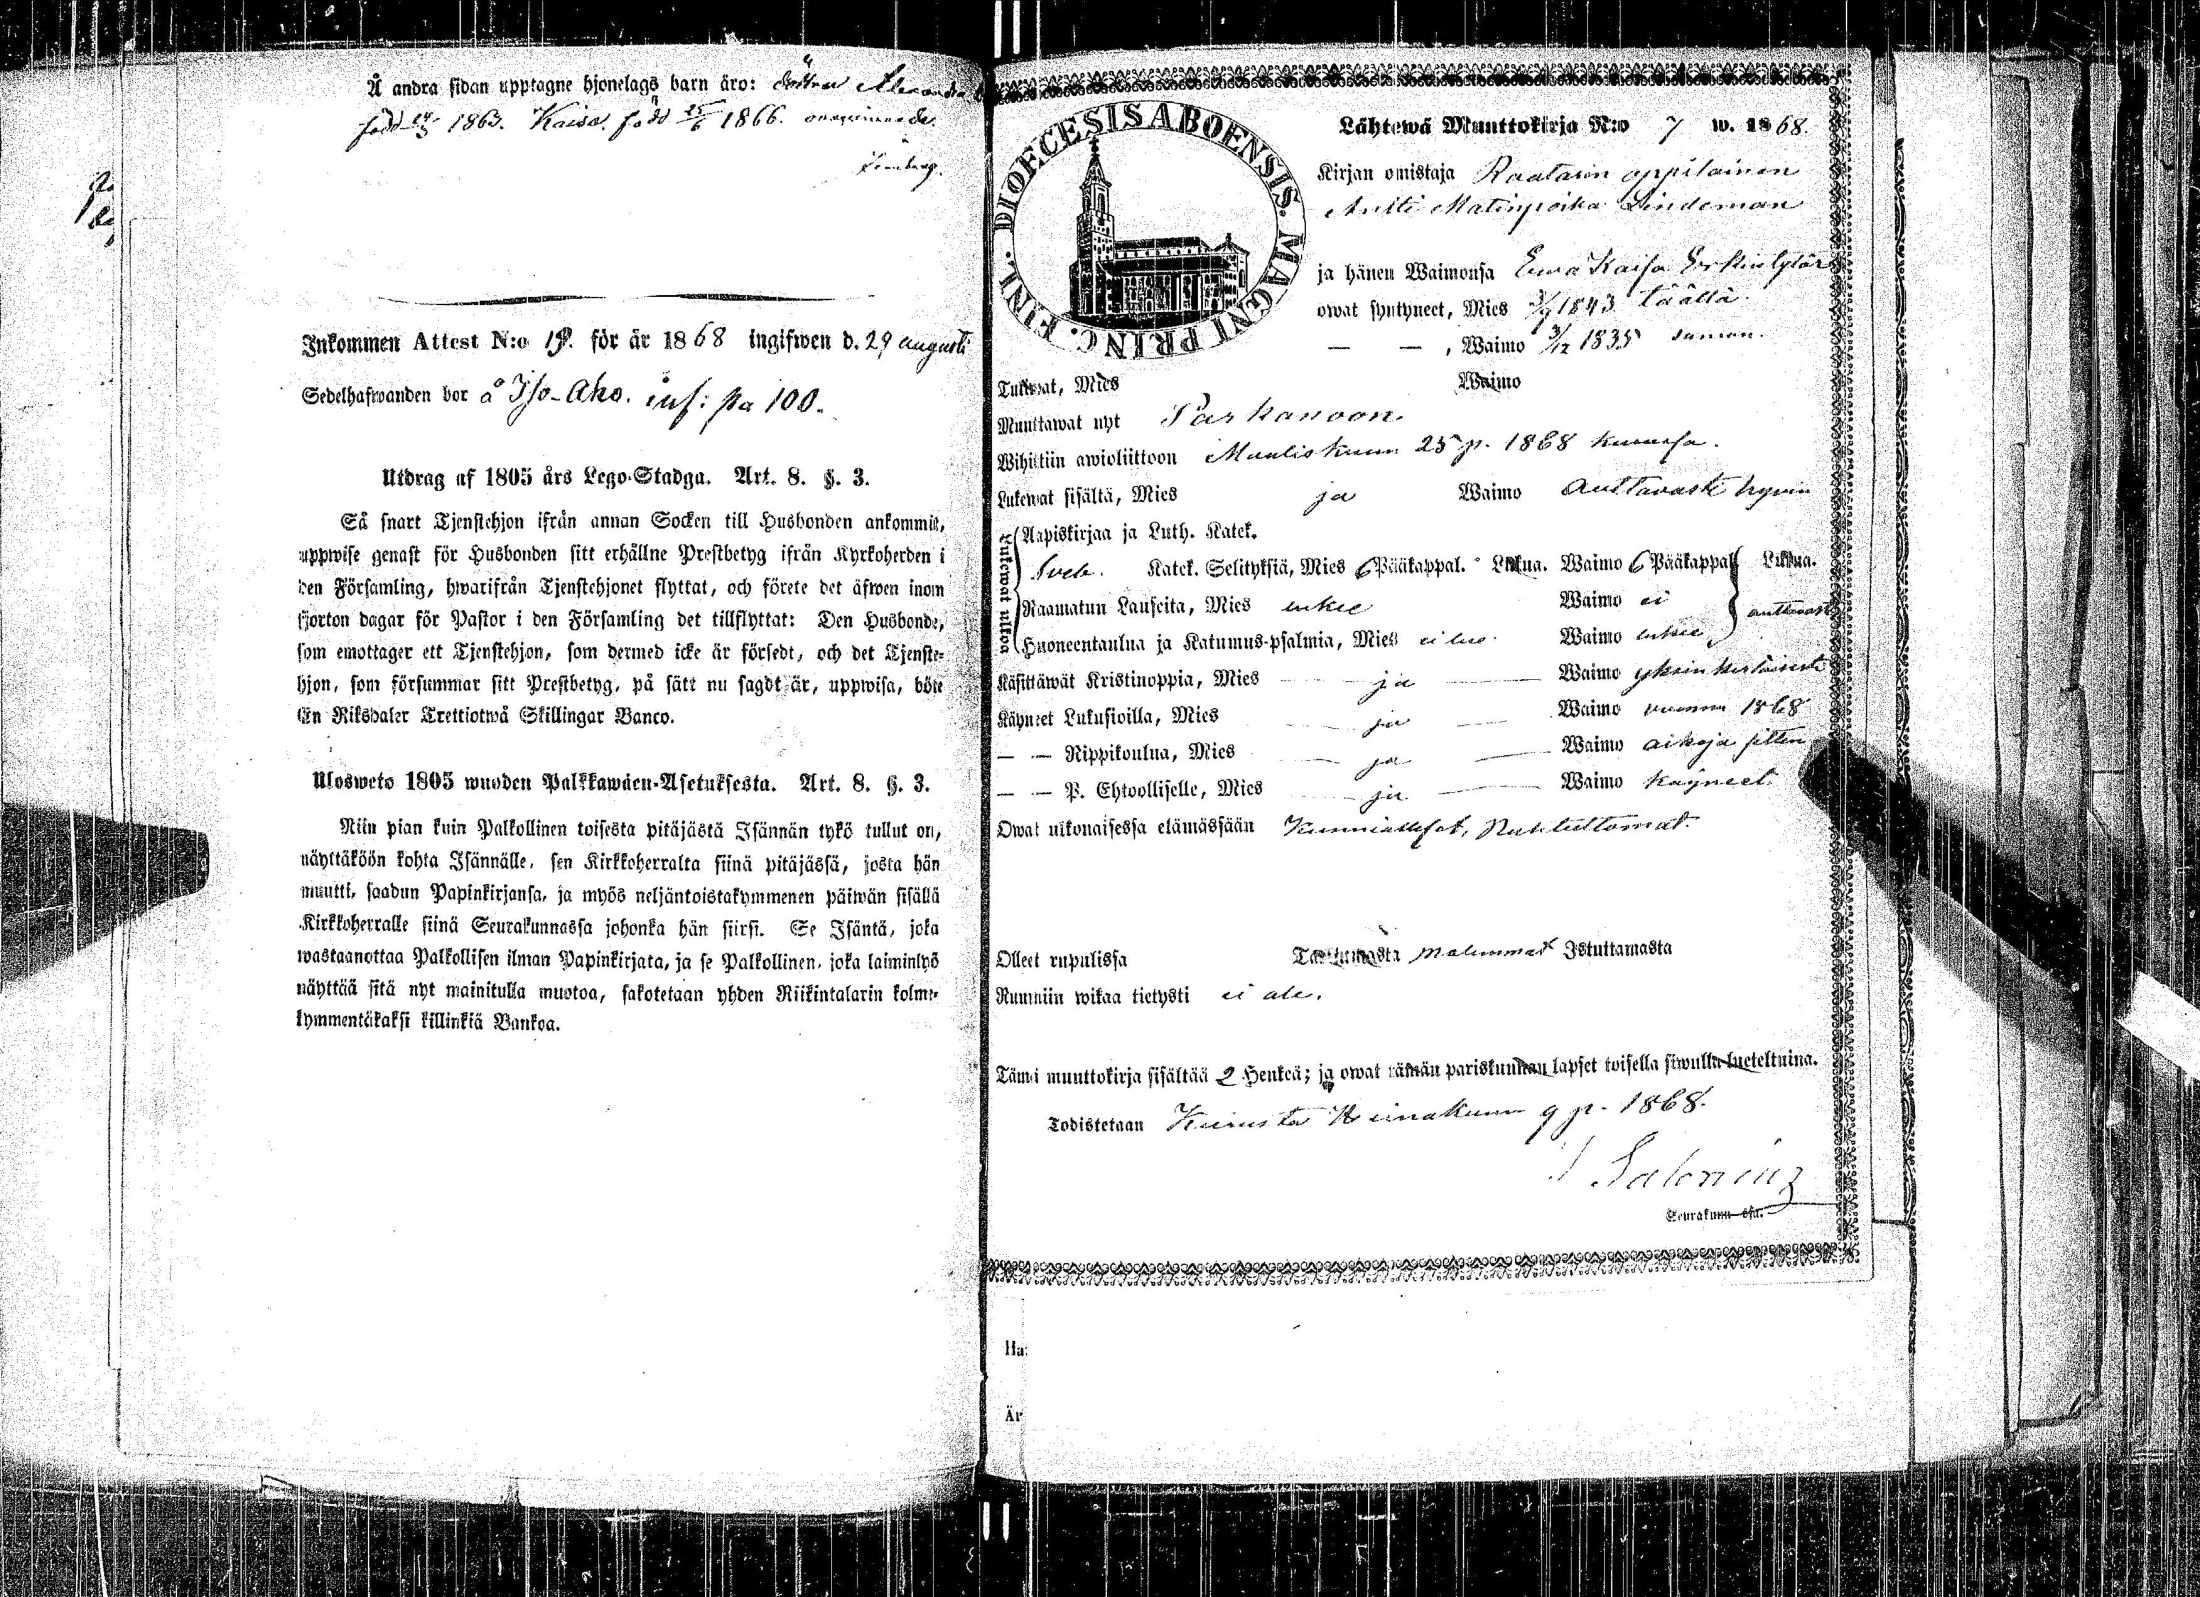 Å andra sidan upptagne hjonelags barn äro:
född 24/3 1863. Kaisa född 25/6 1866.
Inkommen Attest N:o 19. för år 1868 ingifwen d. 29 augusti
Sedelhafwanden bor å Iso-Aho. inf: pa 100.
Utdrag af 1805 års Lego-Stadga. Art. 8. §. 3.
Så snart Tjenstehjon ifrån annan Socken till Husbonden ankommit,
uppwise genast för Husbonden sitt erhållne Prestbetyg ifrån Kyrkoherden i
den Församling, hwarifrån Tjenstehjonet flyttat, och förete det äfwen inom
fjorton dagar för Pastor i den Församling det tillflyttat: Den Husbonde,
som emottager ett Tjenstehjon, som dermed icke är försedt, och det Tjenste-
hjon, som försummar sitt Prestbetyg, på sätt nu sagdt är, uppwisa, böte
En Riksdaler Trettiotwå Skillingar Banco.
Ulosweto 1805 wuoden Palkkawäen-Asetuksesta. Art. 8. §. 3.
Niin pian kuin Palkollinen toisesta pitäjästä Isännän tykö tullut on,
näyttäköön kohta Isännälle, sen Kirkkoherralta siinä pitäjässä, josta hän
muutti, saadun Papinkirjansa, ja myös neljäntoistakymmenen päiwän sisällä
Kirkkoherralle siinä Seurakunnassa johonka hän siirsi. Se Isäntä, joka
wastaanottaa Palkollisen ilman Papinkirjata, ja se Palkollinen, joka laiminlyö
näyttää sitä nyt mainitulla muotoa, sakotetaan yhden Riikintalarin kolme-
kymmentäkaksi killinkiä Bankoa.
DIOECESIS ABOENSIS. MAGNI PRINC. FINL.
Lähtewä Muuttokirja N:o 7 w. 1868.
Kirjan omistaja Raatarin oppilainen
Antti Matinpoika Lindeman
ja hänen Waimonsa Ewa Kaisa Erkintytär
owat syntyneet, Mies 1843 täällä.
— — , Waimo 3/12 1835 saman.
Tulewat, Mies Waimo
Muuttawat nyt Parkanoon
Wihittiin awioliittoon Maaliskuun 25 p. 1868
Lukewat sisältä, Mies ja Waimo auttavasti hywin
Lukewat ulkoa
Aapiskirjaa ja Luth. Katek.
Sveb. Katek. Selityksiä, Mies 6 Pääkappal. Lukua. Waimo 6 Pääkappal. Lukua.
Raamatun Lauseita, Mies Waimo ei auttavasti
Huoneentaulua ja Katumus-psalmia, Mies Waimo
Käsittäwät Kristinoppia, Mies ja Waimo yksinkertaisesti
Käyneet Lukusioilla, Mies ja Waimo vuonna 1868
— — Rippikoulua, Mies ja Waimo aikoja sitten
— — P. Ehtoolliselle, Mies ja Waimo käyneet.
Owat ulkonaisessa elämässään Kunnialliset, Nuhteettomat.
Olleet rupulissa Tarttumasta molemmat Istuttamasta
Ruumiin wikaa tietysti ei ole.
Tämä muuttokirja sisältää 2 Henkeä; ja owat tämän pariskunnan lapset toisella siwulla lueteltuina.
Todistetaan Heinakuun 9 p. 1868.
Salonius
Ha
Är